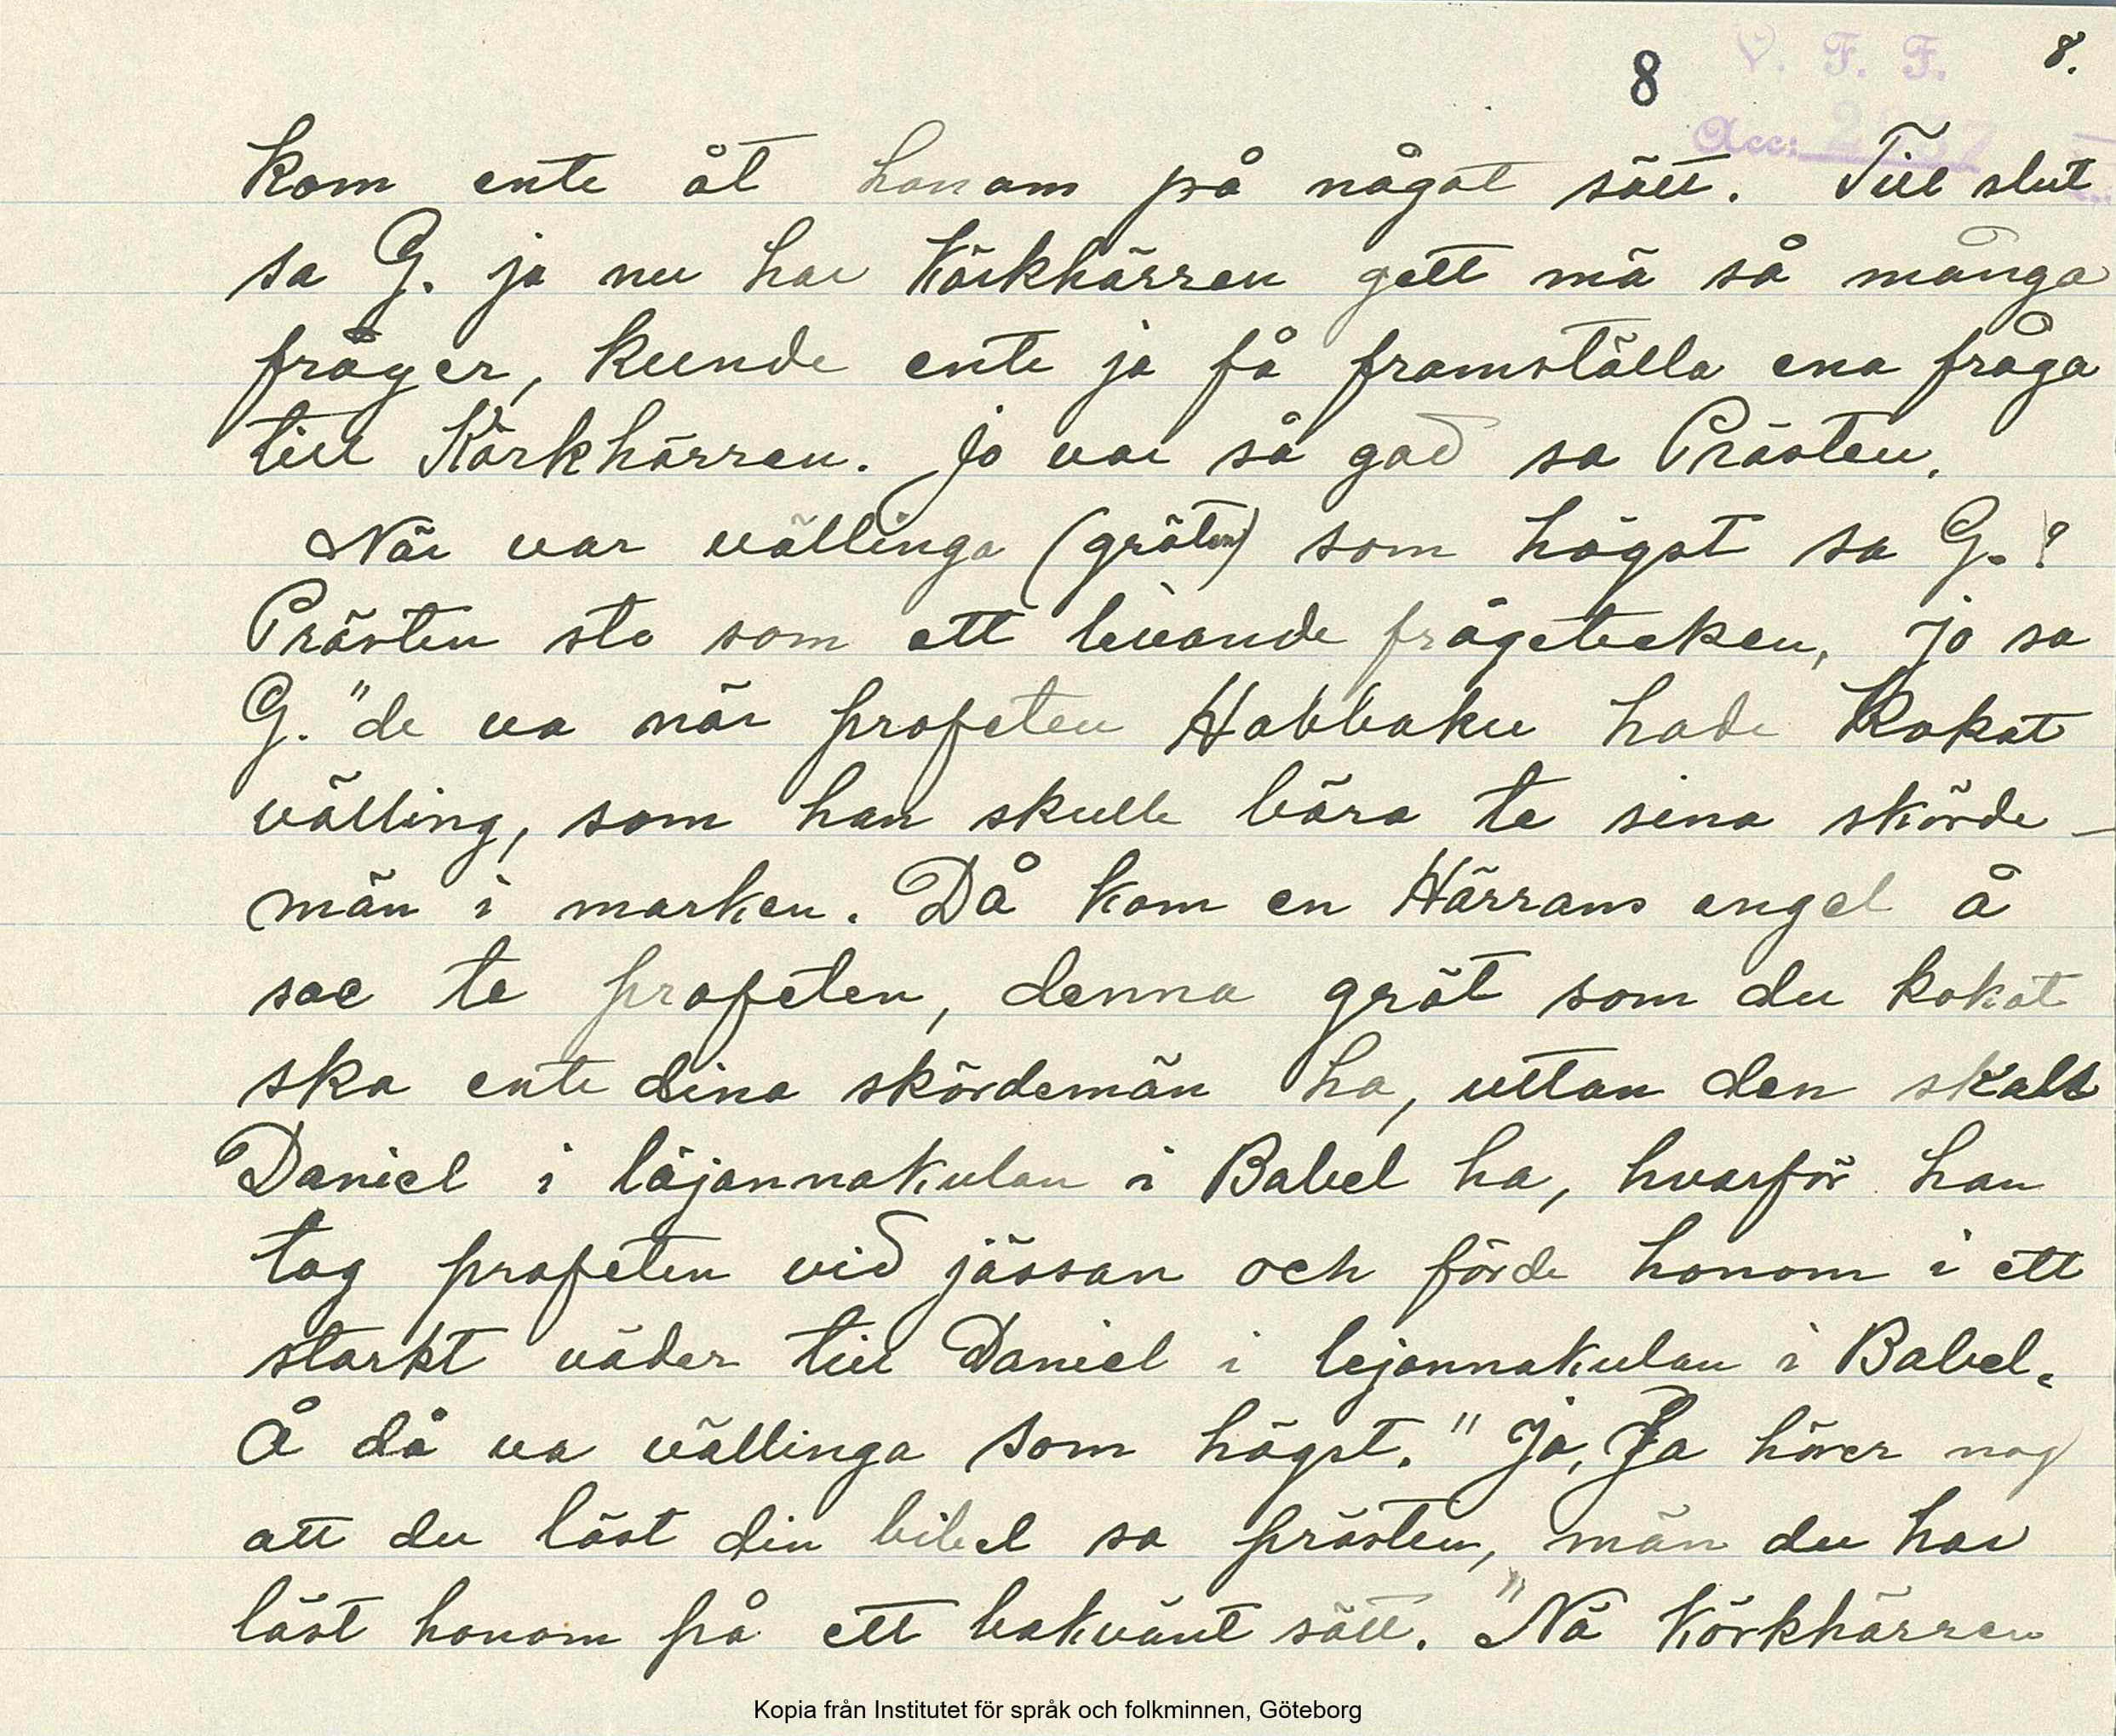 8 V. F. F. 8.
Acc:
kom ente åt honom på något sätt. Till slut
sa G. ja nu har Körkhärren gett mä så många
fråger, kunde ente ja få framställa ena fråga
till Körkhärren. Jo var så god sa Prästen.
När var vällinga (gröten) som högst sa G.?
Prästen sto som ett levande frågetecken, jo sa
G. "de va när profeten Habbaku hade kokat
välling, som han skulle bära te sina skörde-
män i marken. Då kom en Härrans angel å
sae te profeten, denna gröt som du kokat
ska ente dina skördemän ha, uttan den skall
Daniel i läjonnakulan i Babel ha, hvarför han
tog profeten vid jässan och förde honom i ett
starkt väder till Daniel i lejonnakulan i Babel.
Å då va vällinga som högst." Jo, Ja hörer nog
att du läst din bibel sa prästen, män du har
läst honom på ett bakvänt sätt. "Nä Körkhärren
Kopia från Institutet för språk och folkminnen, Göteborg